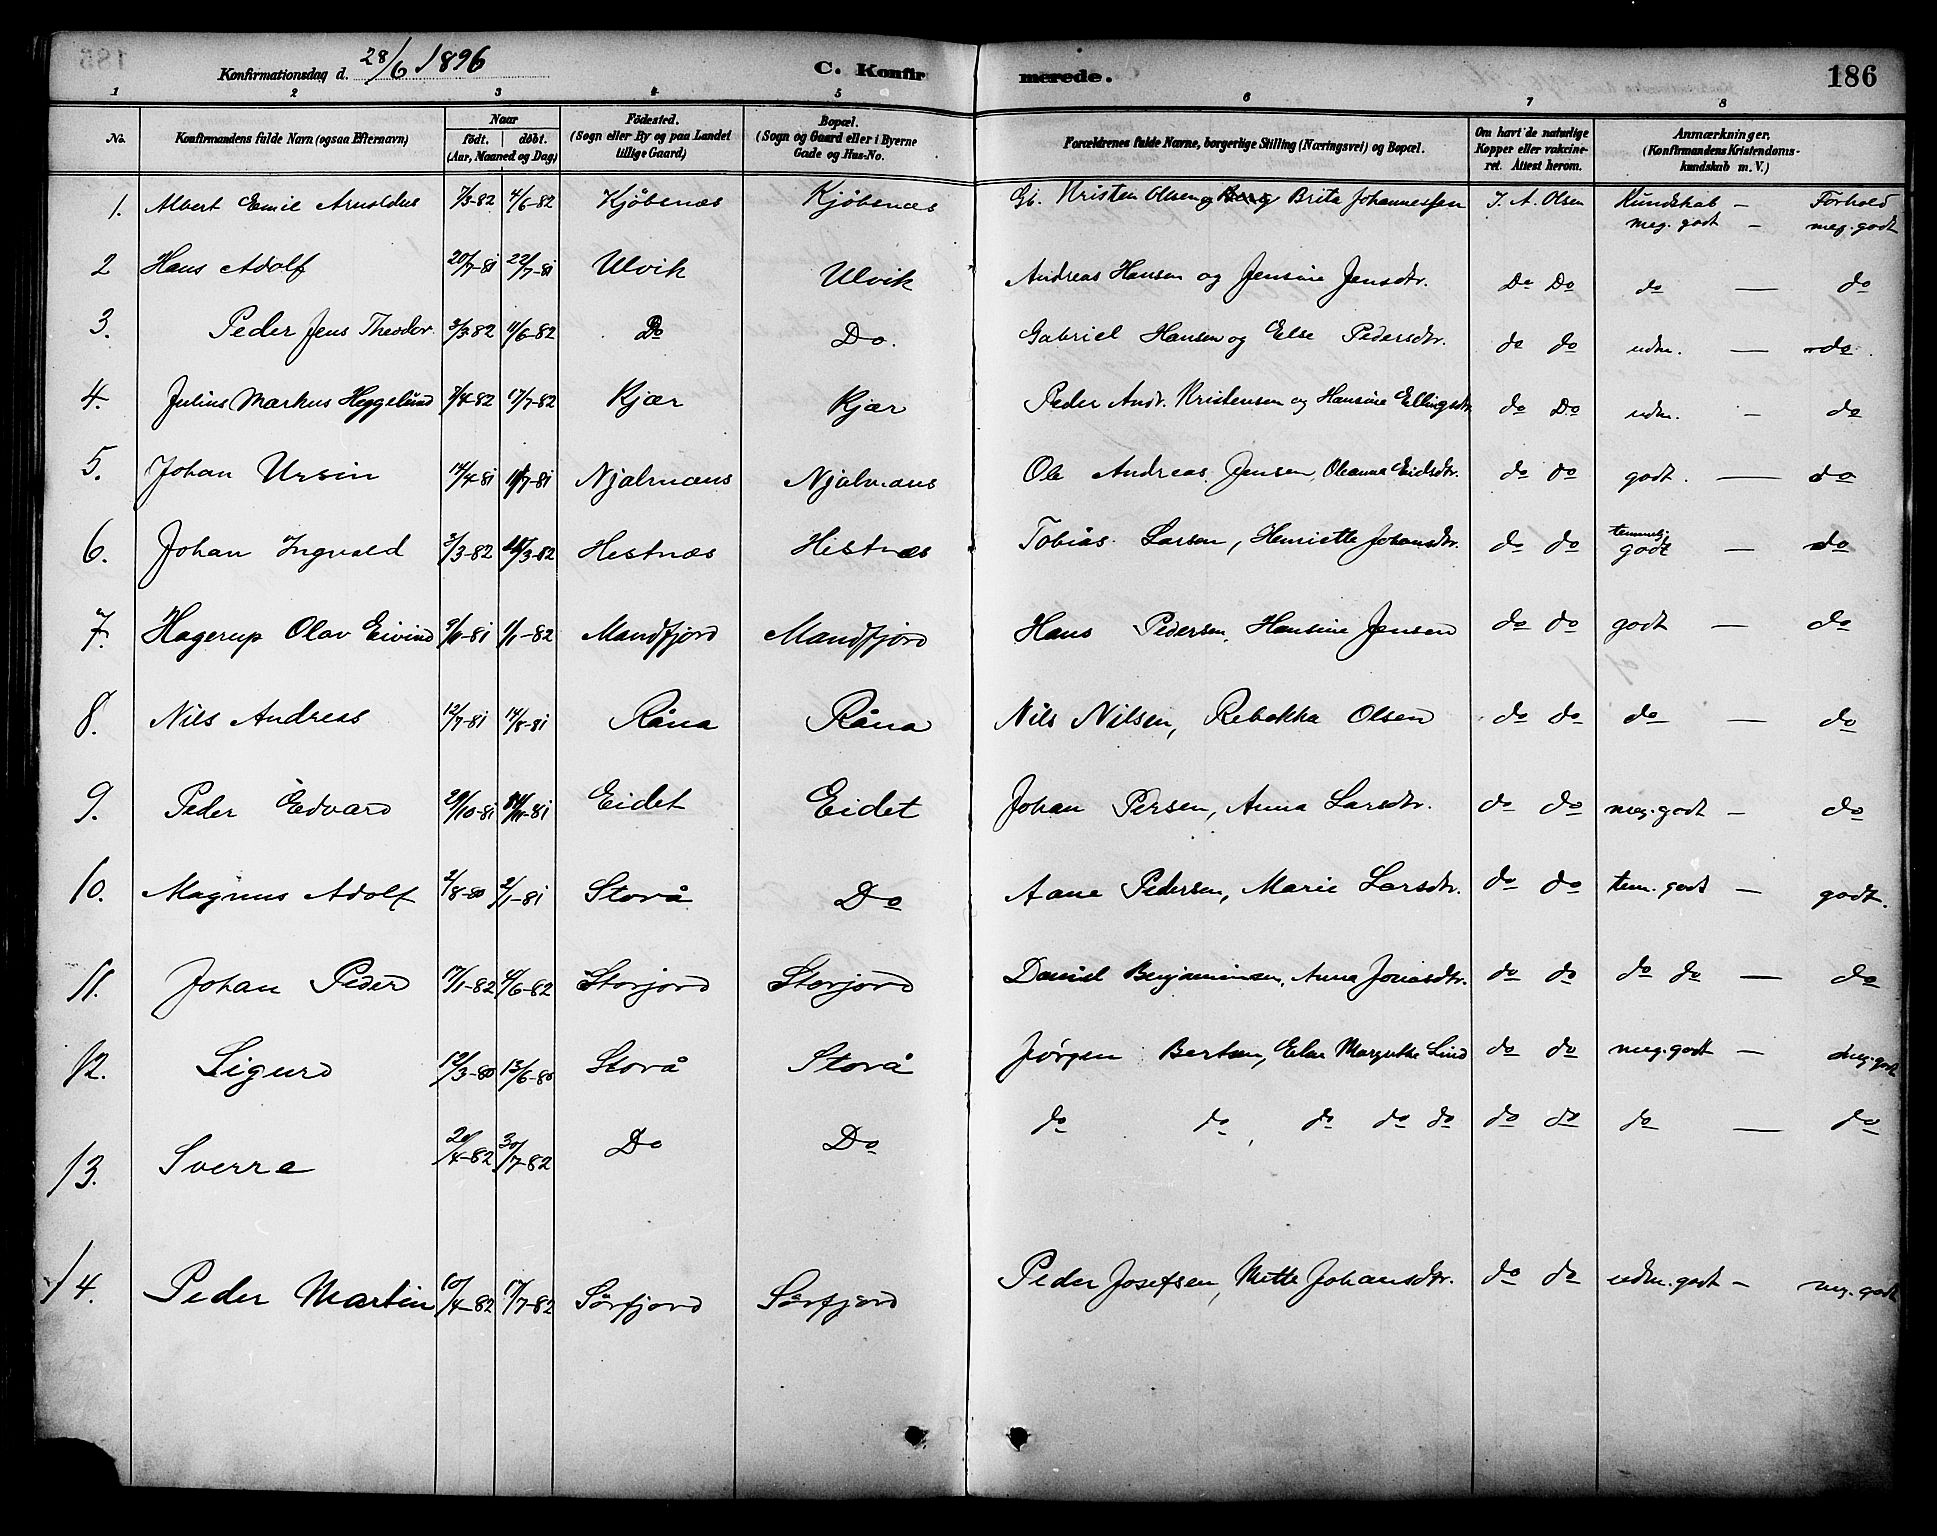 Konfirmationsdag d. 28/6 1896 C. Konfirmerede. 186
1 2 3 4 5 6 7 8
No. Konfirmandens fulde Navn (ogsaa Efternavn) Naar födt. döbt. (Aar, Maaned og Dag) Födested. (Sogn eller By og paa Landet tillige Gaard) Bopæl. (Sogn og Gaard eller i Byerne Gade og Hus-No. Forældrenes fulde Navne, borgerlige Stilling (Næringsvei) og Bopæl. Om havt de naturlige Kopper eller vakcineret. Attest herom. Anmærkninger, (Konfirmandens Kristendomskundskab m. V.)
1. Albert Emil Arnoldus 7/3-82 4/6-82 Kjöbsnæs Kjöbsnæs Gb. Kristen Olsen og Brita Johannessen J. A. Olsen Kundskab meg. godt - Forhold meg. godt
2 Hans Adolf 20/7-81 22/7-81 Ulvik Ulvik Andreas Hansen og Jensine Jensdtr. Do Do do - do
3. Peder Jens Theodor 3/3-82 4/6-82 Do Do. Gabriel Hansen og Else Pedersdtr. do do udm. - do.
4. Julius Markus Heggelund 7/4-82 17/7-82 Kjær Kjær Peder Andr. Kristensen og Hansine Ellingsdtr. do Do udm. - do
5. Johan Ursin 14/4-81 17/7-81 Njalmæns Njalmæns Ole Andreas Jensen, Oleanna Eidsdtr. do do godt. - do
6. Johan Ingvald 3/3-82 /3-82 Hestnæs Hestnæs Tobias Larsen, Henriette Johansdtr. do do temmelig godt - do
7. Hagerup Olav Eivind 9/11-81 1/1-82 Mandfjord Mandfjord Hans Pedersen, Hansine Jensen do do godt - do
8. Nils Andreas 12/7-81 14/8-81 Råna Råna Nils Nilsen, Rebekka Olsen do do do - do
9. Peder Edvard 29/10-81 /11-81 Eidet Eidet Johan Persen, Anna Larsdtr. do do meg. godt - do
10. Magnus Adolf 2/8-80 2/1-81 Storå Do Aane Pedersen, Marie Larsdtr. do do tem. godt - godt.
11. Johan Peder 17/1-82 4/6-82 Storjord Storjord Daniel Benjaminsen, Anna Jonasdtr. do do do do - do
12. Sigurd 12/3-80 13/6-80 Storå Storå Jörgen Bertsen, Else Margrethe Lind do do meg. godt - meg. godt
13. Sverre 20/4-82 30/7-82 Do Do do do, do do do do do do - do
14. Peder Martin 10/4-82 17/7-82 Sörfjord Sörfjord Peder Josefsen, Mette Johansdtr. do do udm. godt - meg. godt